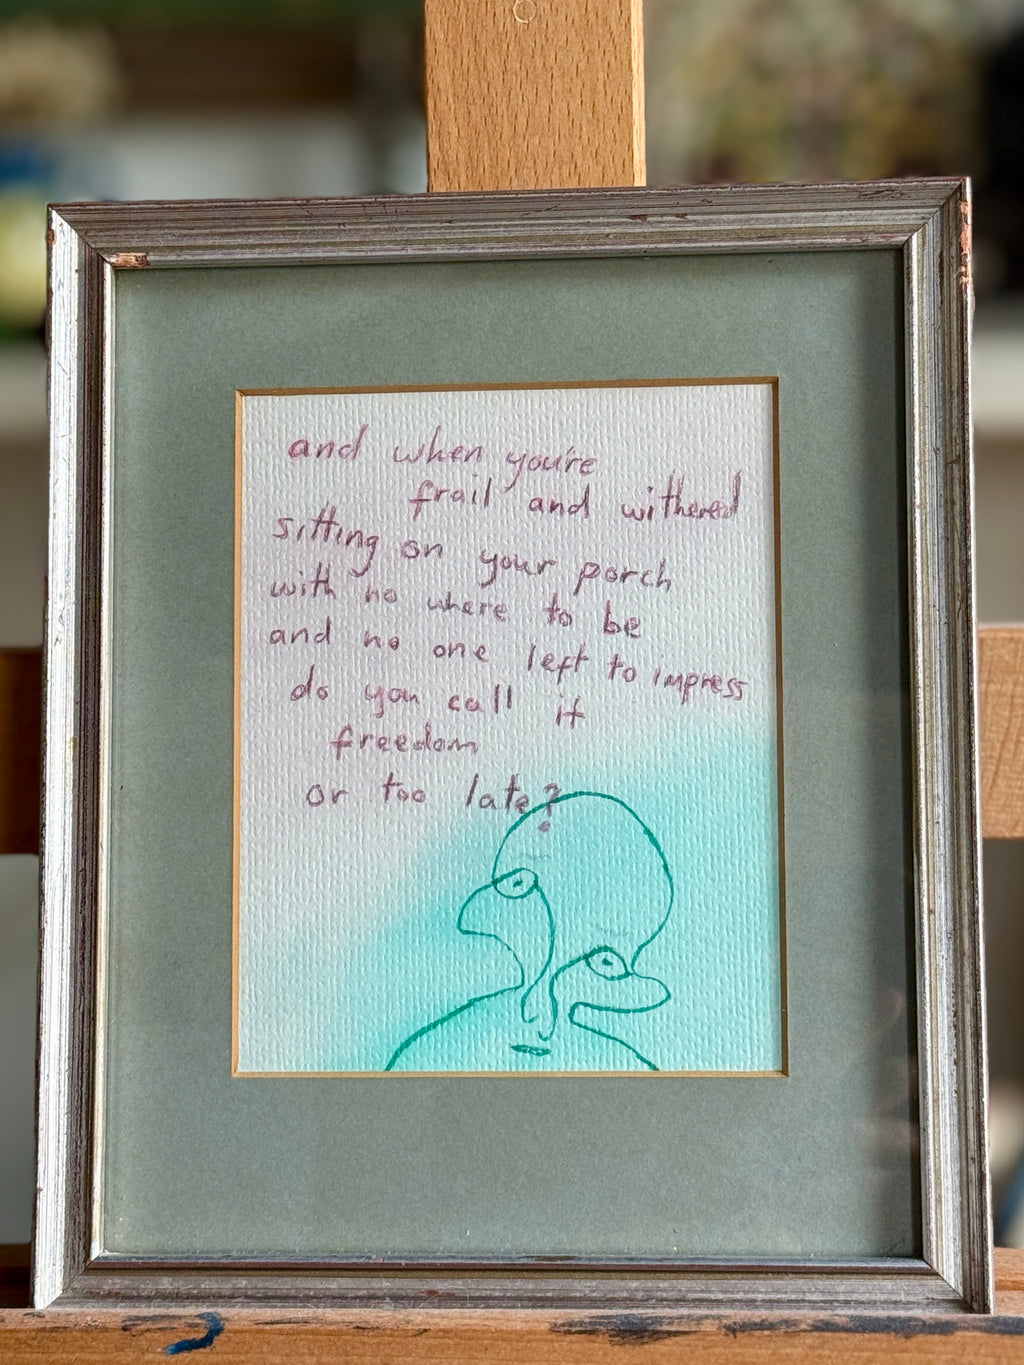 and when you're
frail and withered
sitting on your porch
with no where to be
and no one left to impress
do you call it
freedom
or too late?